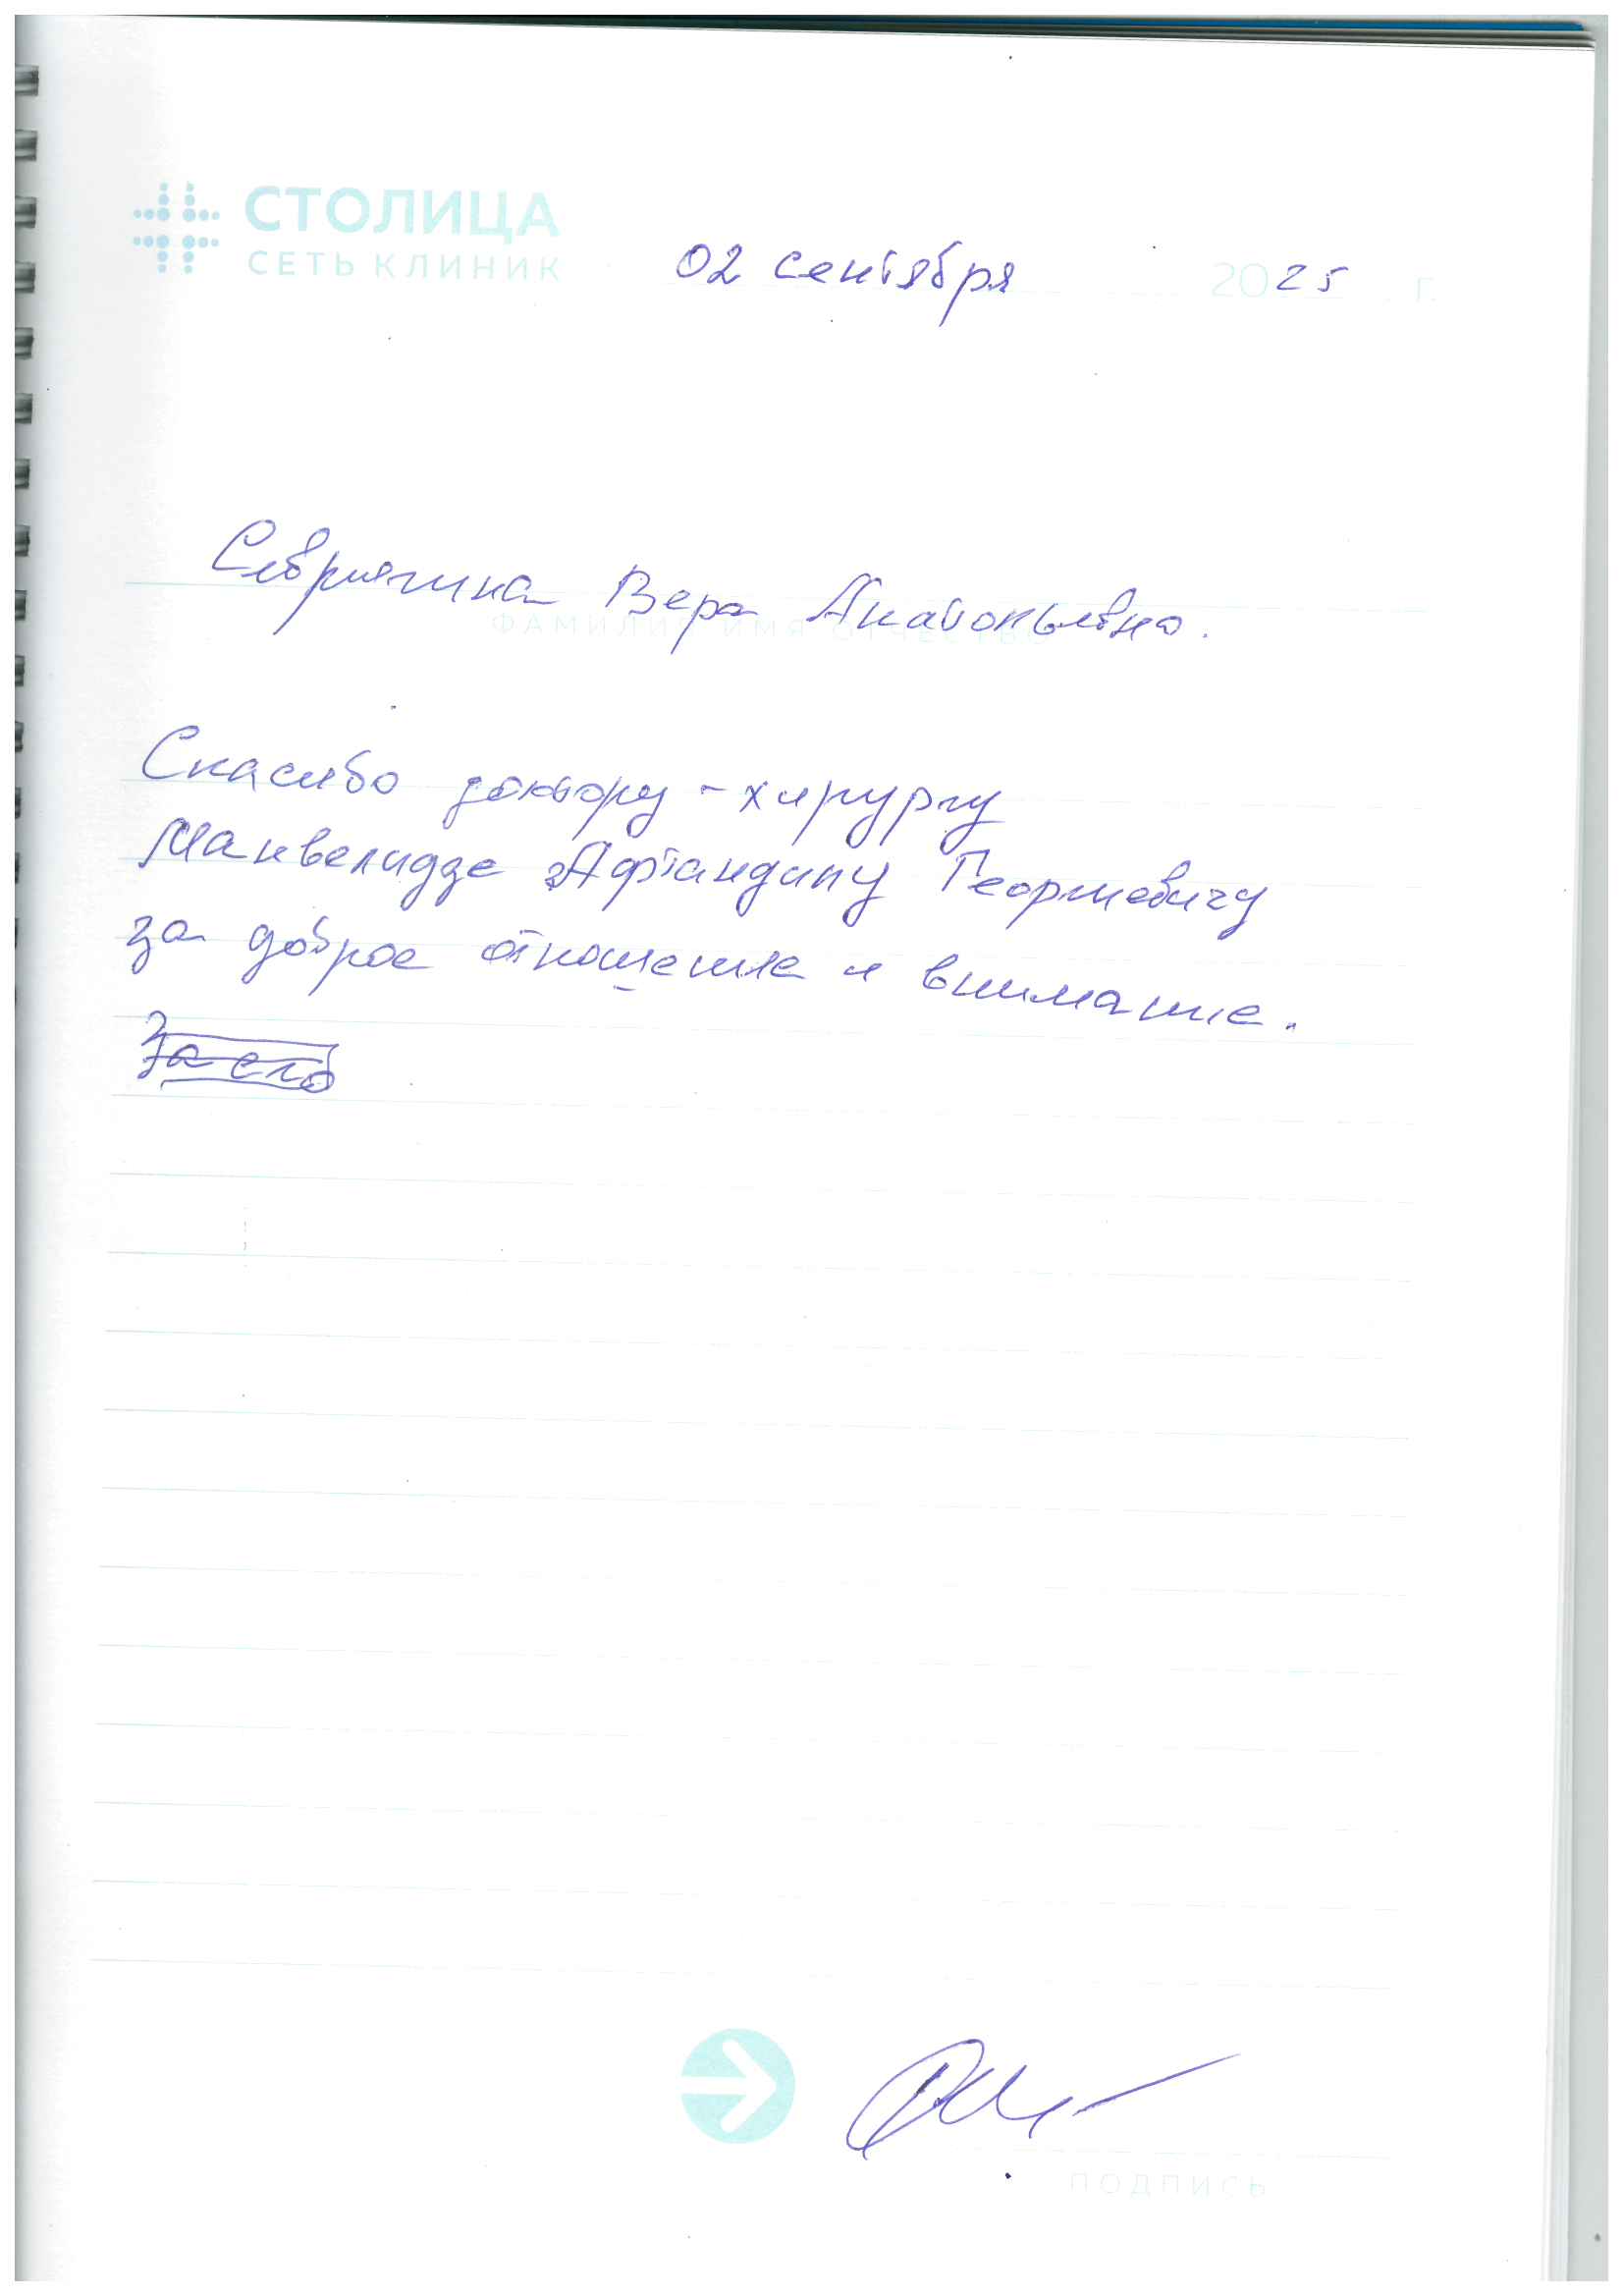 СТОЛИЦА
СЕТЬ КЛИНИК
02 сентября 2025 г.
Вера Анатольевна.
ФАМИЛИЯ ИМЯ ОТЧЕСТВО
Спасибо доктору-хирургу
Манвелидзе Афтандилу Георгиевичу
за доброе отношение и внимание.
ПОДПИСЬ